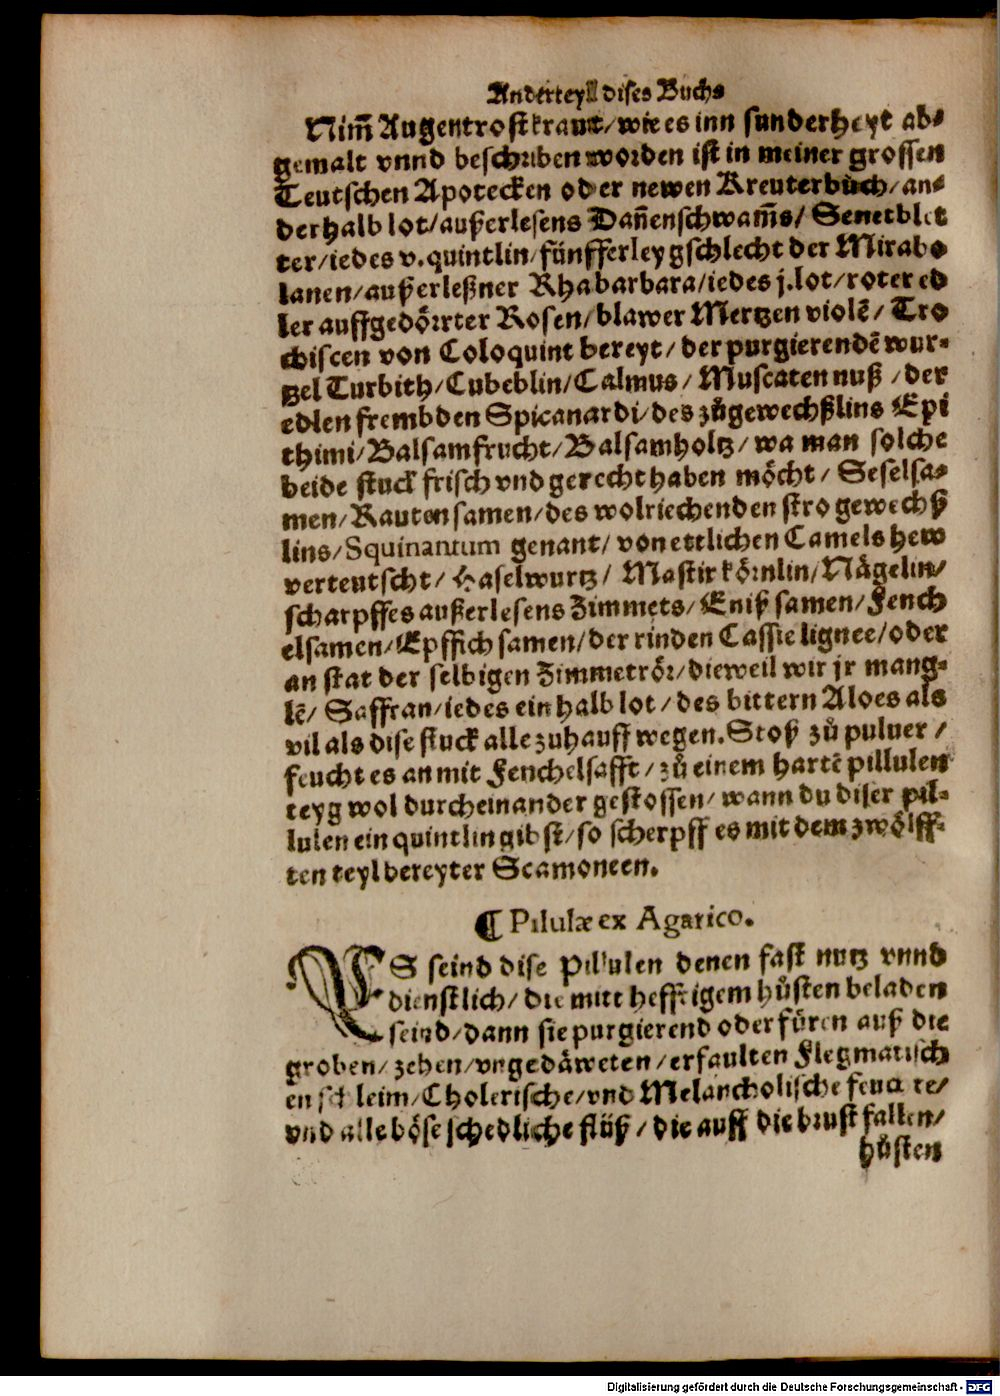 Anderteyl dises Buchs
Nim̃ Augentrostkraut/wie es inn sunderheyt ab⸗
gemalt vnnd beschriben worden ist in meiner grossen
Teutschen Apotecken oder newen Kreuterbůch/an⸗
derhalb lot/außerlesens Dañenschwam̃s/ Senetblet
ter/iedes v.quintlin/fünfferley gschlecht der Mirabo
lanen/außerleßner Rhabarbara/iedes j.lot/roter ed
ler auffgedörrter Rosen/blawer Mertzen violẽ/ Tro
chiscen von Coloquint bereyt/der purgierendẽ wur⸗
tzel Turbith/Cubeblin/Calmus/ Muscaten nuß /der
edlen frembden Spicanardi/des zůgewechßlins Epi
thimi/Balsamfrucht/Balsamholtz/wa man solche
beide stuck frisch vnd gerecht haben möcht/ Seselsa⸗
men/Rauten samen/des wolriechenden stro gewechß
lins/Squinantum genant/ von ettlichen Camels hew
verteutscht/ Haselwurtz/ Mastix körnlin/Nägelin/
scharpffes außerlesens Zimmets/Eniß samen/Fench
elsamen/Epffich samen/der rinden Cassie lignee/oder
an stat der selbigen Zimmetrör/dieweil wir jr mang⸗
lẽ/ Saffran/iedes ein halb lot/des bittern Aloes als
vil als dise stuck alle zuhauff wegen.Stoß zů puluer /
feucht es an mit Fenchelsafft/zů einem hartẽ pillulen
teyg wol durcheinander gestossen/wann du diser pil⸗
lulen ein quintlin gibst/so scherpff es mit dem zwölff⸗
ten teyl bereyter Scamoneen.
¶ Pilulæ ex Agarico.
ES seind dise Pillulen denen fast nutz vnnd
dienstlich/die mitt hefftigem hůsten beladen
seind/dann sie purgierend oder füren auß die
groben/zehen/vngedäweten/erfaulten Flegmatisch
en schleim/Cholerische/vnd Melancholische feuchte/
vnd alle böse schedliche flüß/die auff die brust fallen/
hůsten
Digitalisierung gefördert durch die Deutsche Forschungsgemeinschaft - DFG